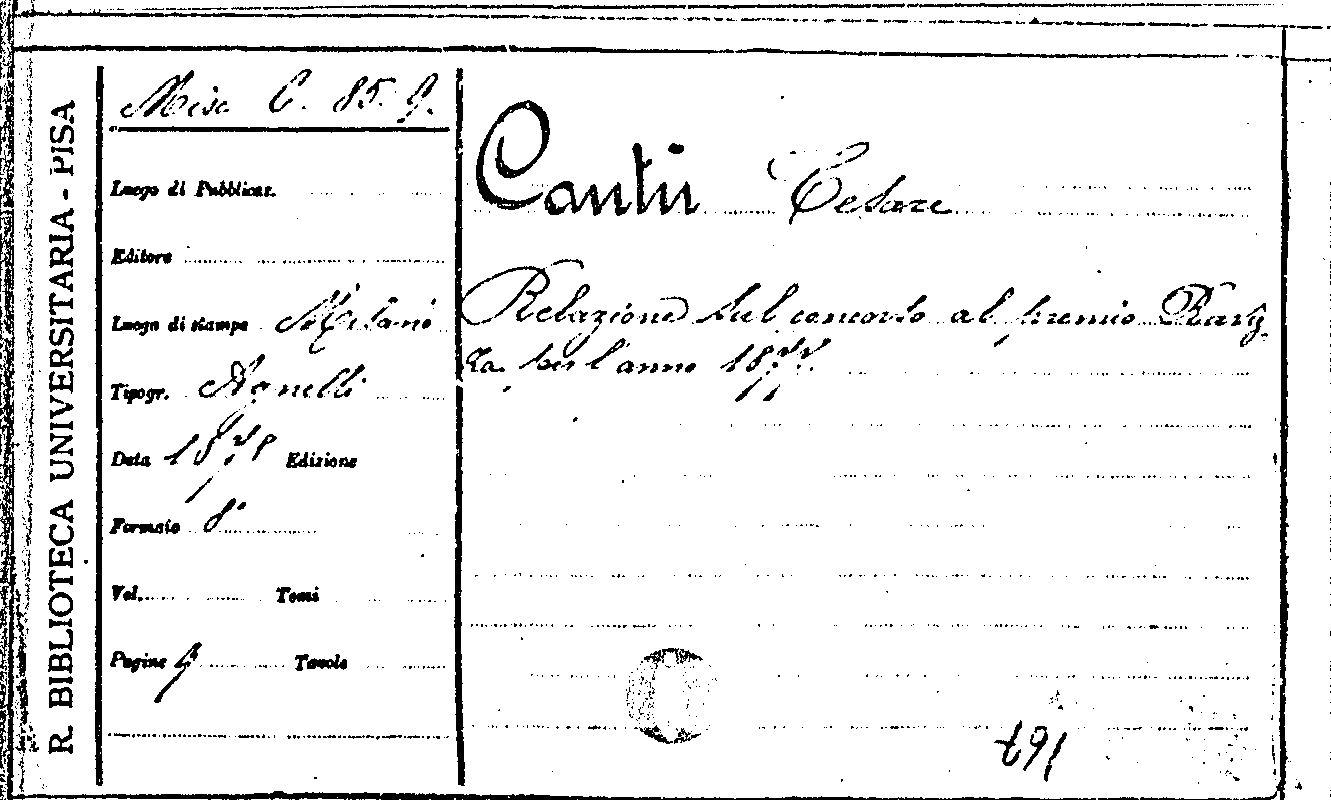 R. BIBLIOTECA UNIVERSITARIA - PISA
Misc C. 85. 9.
Luogo di Pubblicaz.
Editore
Luogo di stampa Milano
Tipogr. Agnelli
Data 1878 Edizione
Formato 8°
Vol. Tomi
Pagine 9 Tavole
Cantù Cesare
Relazione sul concorso al premio Raviz-
za per l'anno 1877.